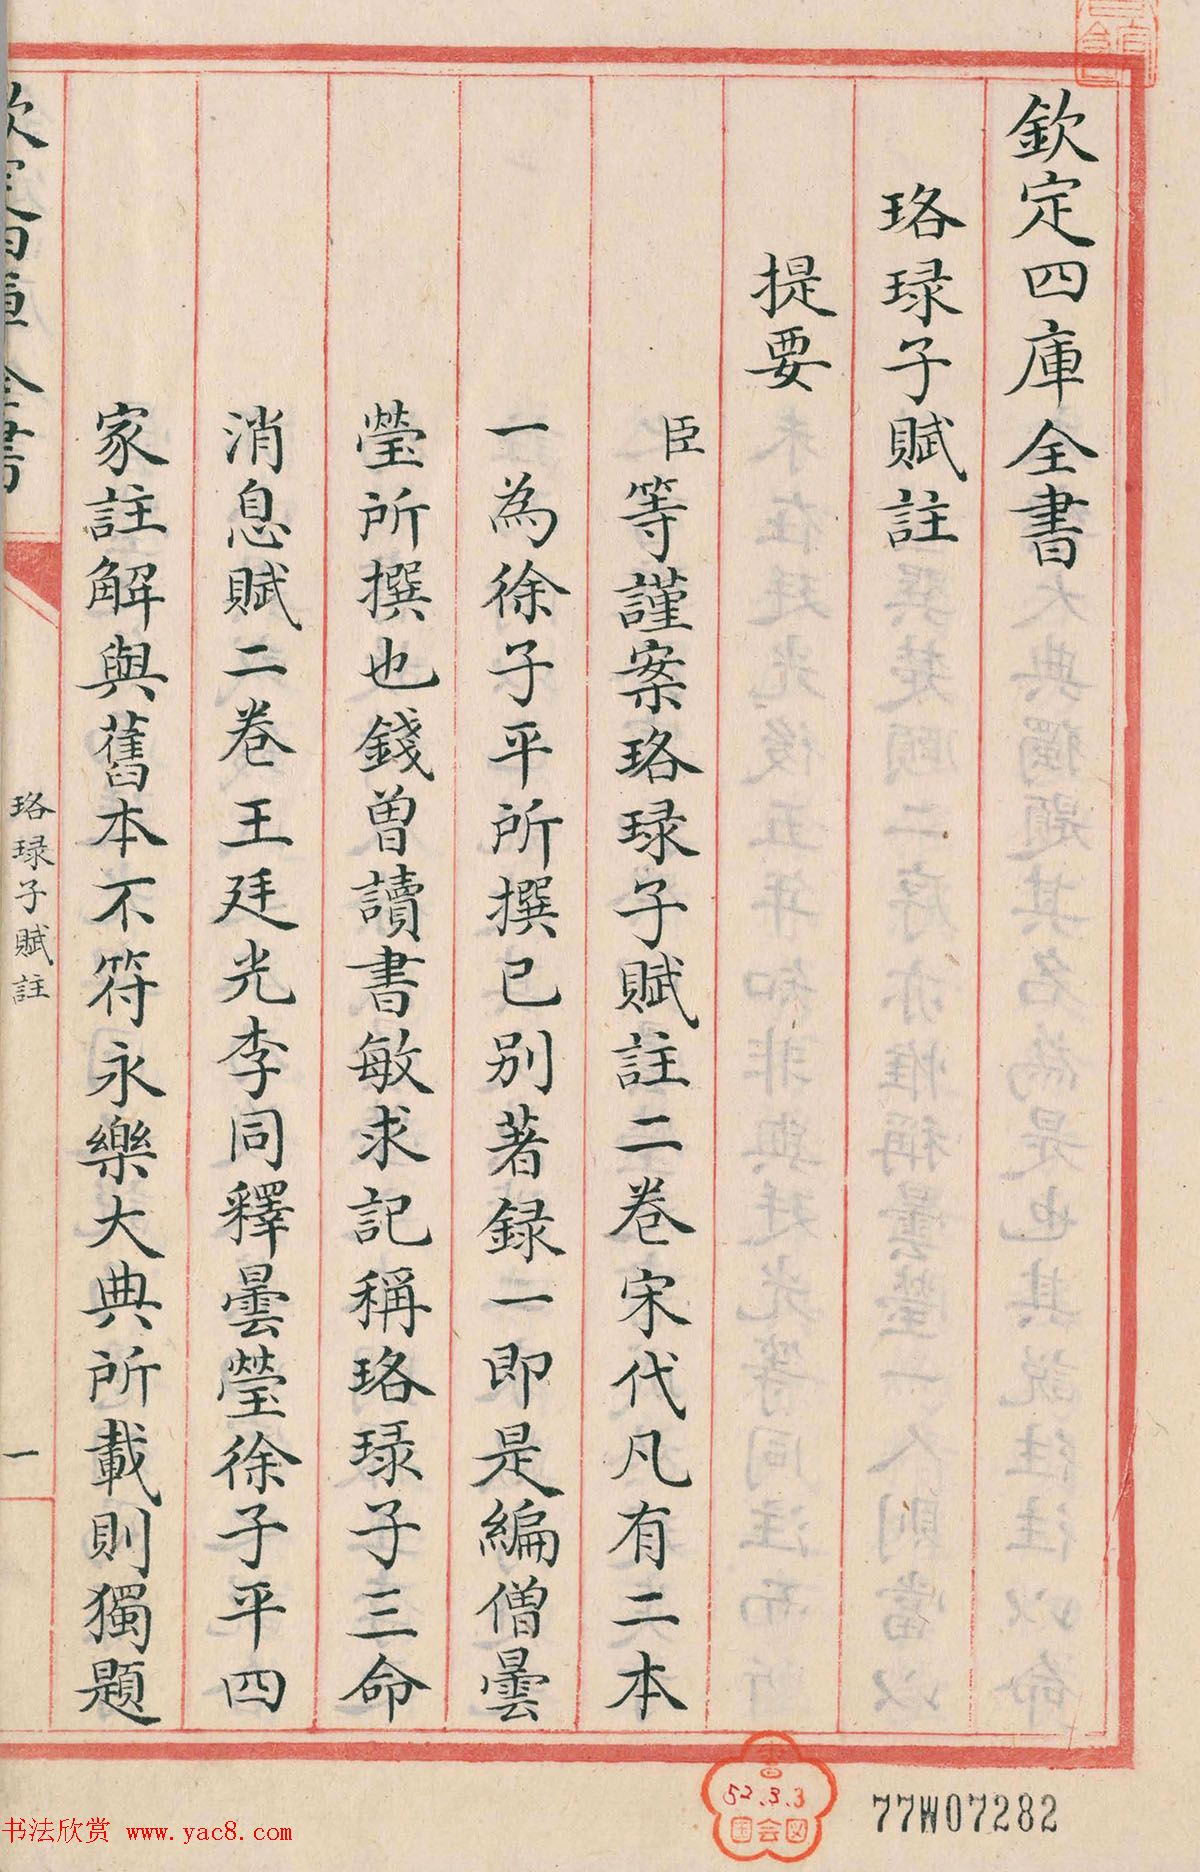 欽定四庫全書
珞琭子賦註
提要
臣等謹案珞琭子賦註二卷宋代凡有二本
一為徐子平所撰已别著録一即是編僧曇
瑩所撰也錢曽讀書敏求記稱珞琭子三命
消息賦二卷王廷光李同釋曇瑩徐子平四
家註解與舊本不符永樂大典所載則獨題
欽定四庫全書
珞琭子賦註
一
52.3.3
77W07282
书法欣赏 www.yac8.com